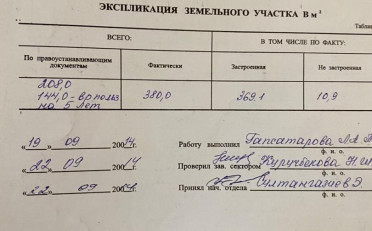 ЭКСПЛИКАЦИЯ ЗЕМЕЛЬНОГО УЧАСТКА В м²
Таблиц
ВСЕГО:
В ТОМ ЧИСЛЕ ПО ФАКТУ:
По правоустанавливающим документам
Фактически
Застроенная
Не застроенная
208,0
144,0 - во польз
на 5 лет
380,0
369,1
10,9
«19» 09 2014г.
Работу выполнил
ф. и. о.
«22» 09 2014г.
Проверил зав. сектором
ф. и. о.
«22» 09 2014г.
Принял нач. отдела Султангазиев Э.
ф. и. о.